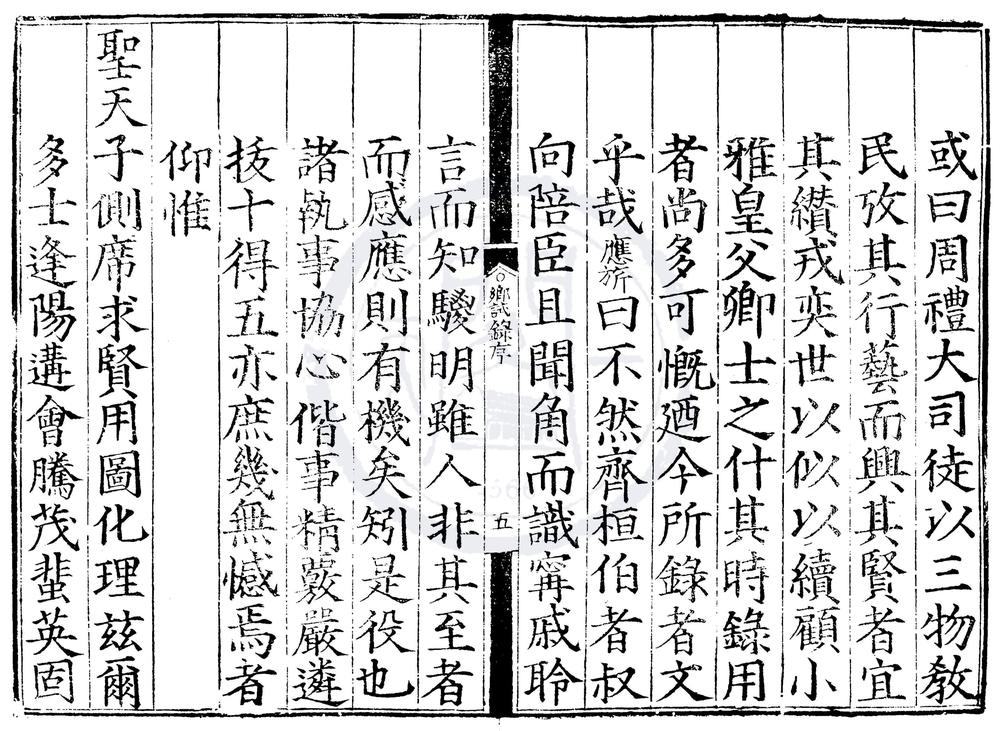 或曰周禮大司徒以三物教
民攷其行藝而興其賢者宜
其纉戎奕世以似以續顧小
雅皇父卿士之什其時錄用
者尚多可慨廼今所錄者文
乎哉應旂曰不然齊桓伯者叔
向陪臣且聞角而識甯戚聆
鄉試錄序
五
言而知鬷明雖人非其至者
而感應則有機矣矧是役也
諸執事協心偕事精覈嚴遴
拔十得五亦庶幾無憾焉者
仰惟
聖天子側席求賢用圖化理茲爾
多士逢陽遘會騰茂蜚英固